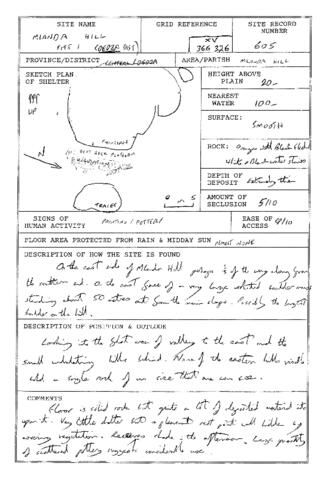 SITE NAME
GRID REFERENCE
SITE RECORD NUMBER
MLANDA HILL
SITE 1
XV
366 326
605
PROVINCE/DISTRICT
AREA/PARISH MLANDA HILL
SKETCH PLAN OF SHELTER
UP
N
PAINTINGS
0 m 5
HEIGHT ABOVE PLAIN 20
NEAREST WATER 100
SURFACE:
SMOOTH
ROCK: Orange with
DEPTH OF DEPOSIT
AMOUNT OF SECLUSION 5/10
SIGNS OF HUMAN ACTIVITY
PAINTING / POTTERY
EASE OF ACCESS 9/10
FLOOR AREA PROTECTED FROM RAIN & MIDDAY SUN Almost NONE
DESCRIPTION OF HOW THE SITE IS FOUND
On the east side of Mlanda Hill perhaps of the way along from
the northern end. On the east face of a very large isolated boulder
standing about 50 metres out from the main slope. Possibly the largest
boulder on the hill.
DESCRIPTION OF POSITION & OUTLOOK
Looking into the flat area of valley to the east and the
small undulating hills behind. None of the eastern hills visible
a single rock of size that one can see.
COMMENTS
Floor is solid rock but quite a lot of deposited material
upon it. Very little shelter but a pleasant rest point well hidden by
vegetation. Receives shade in the afternoon. Large quantity
of scattered pottery suggests considerable use.